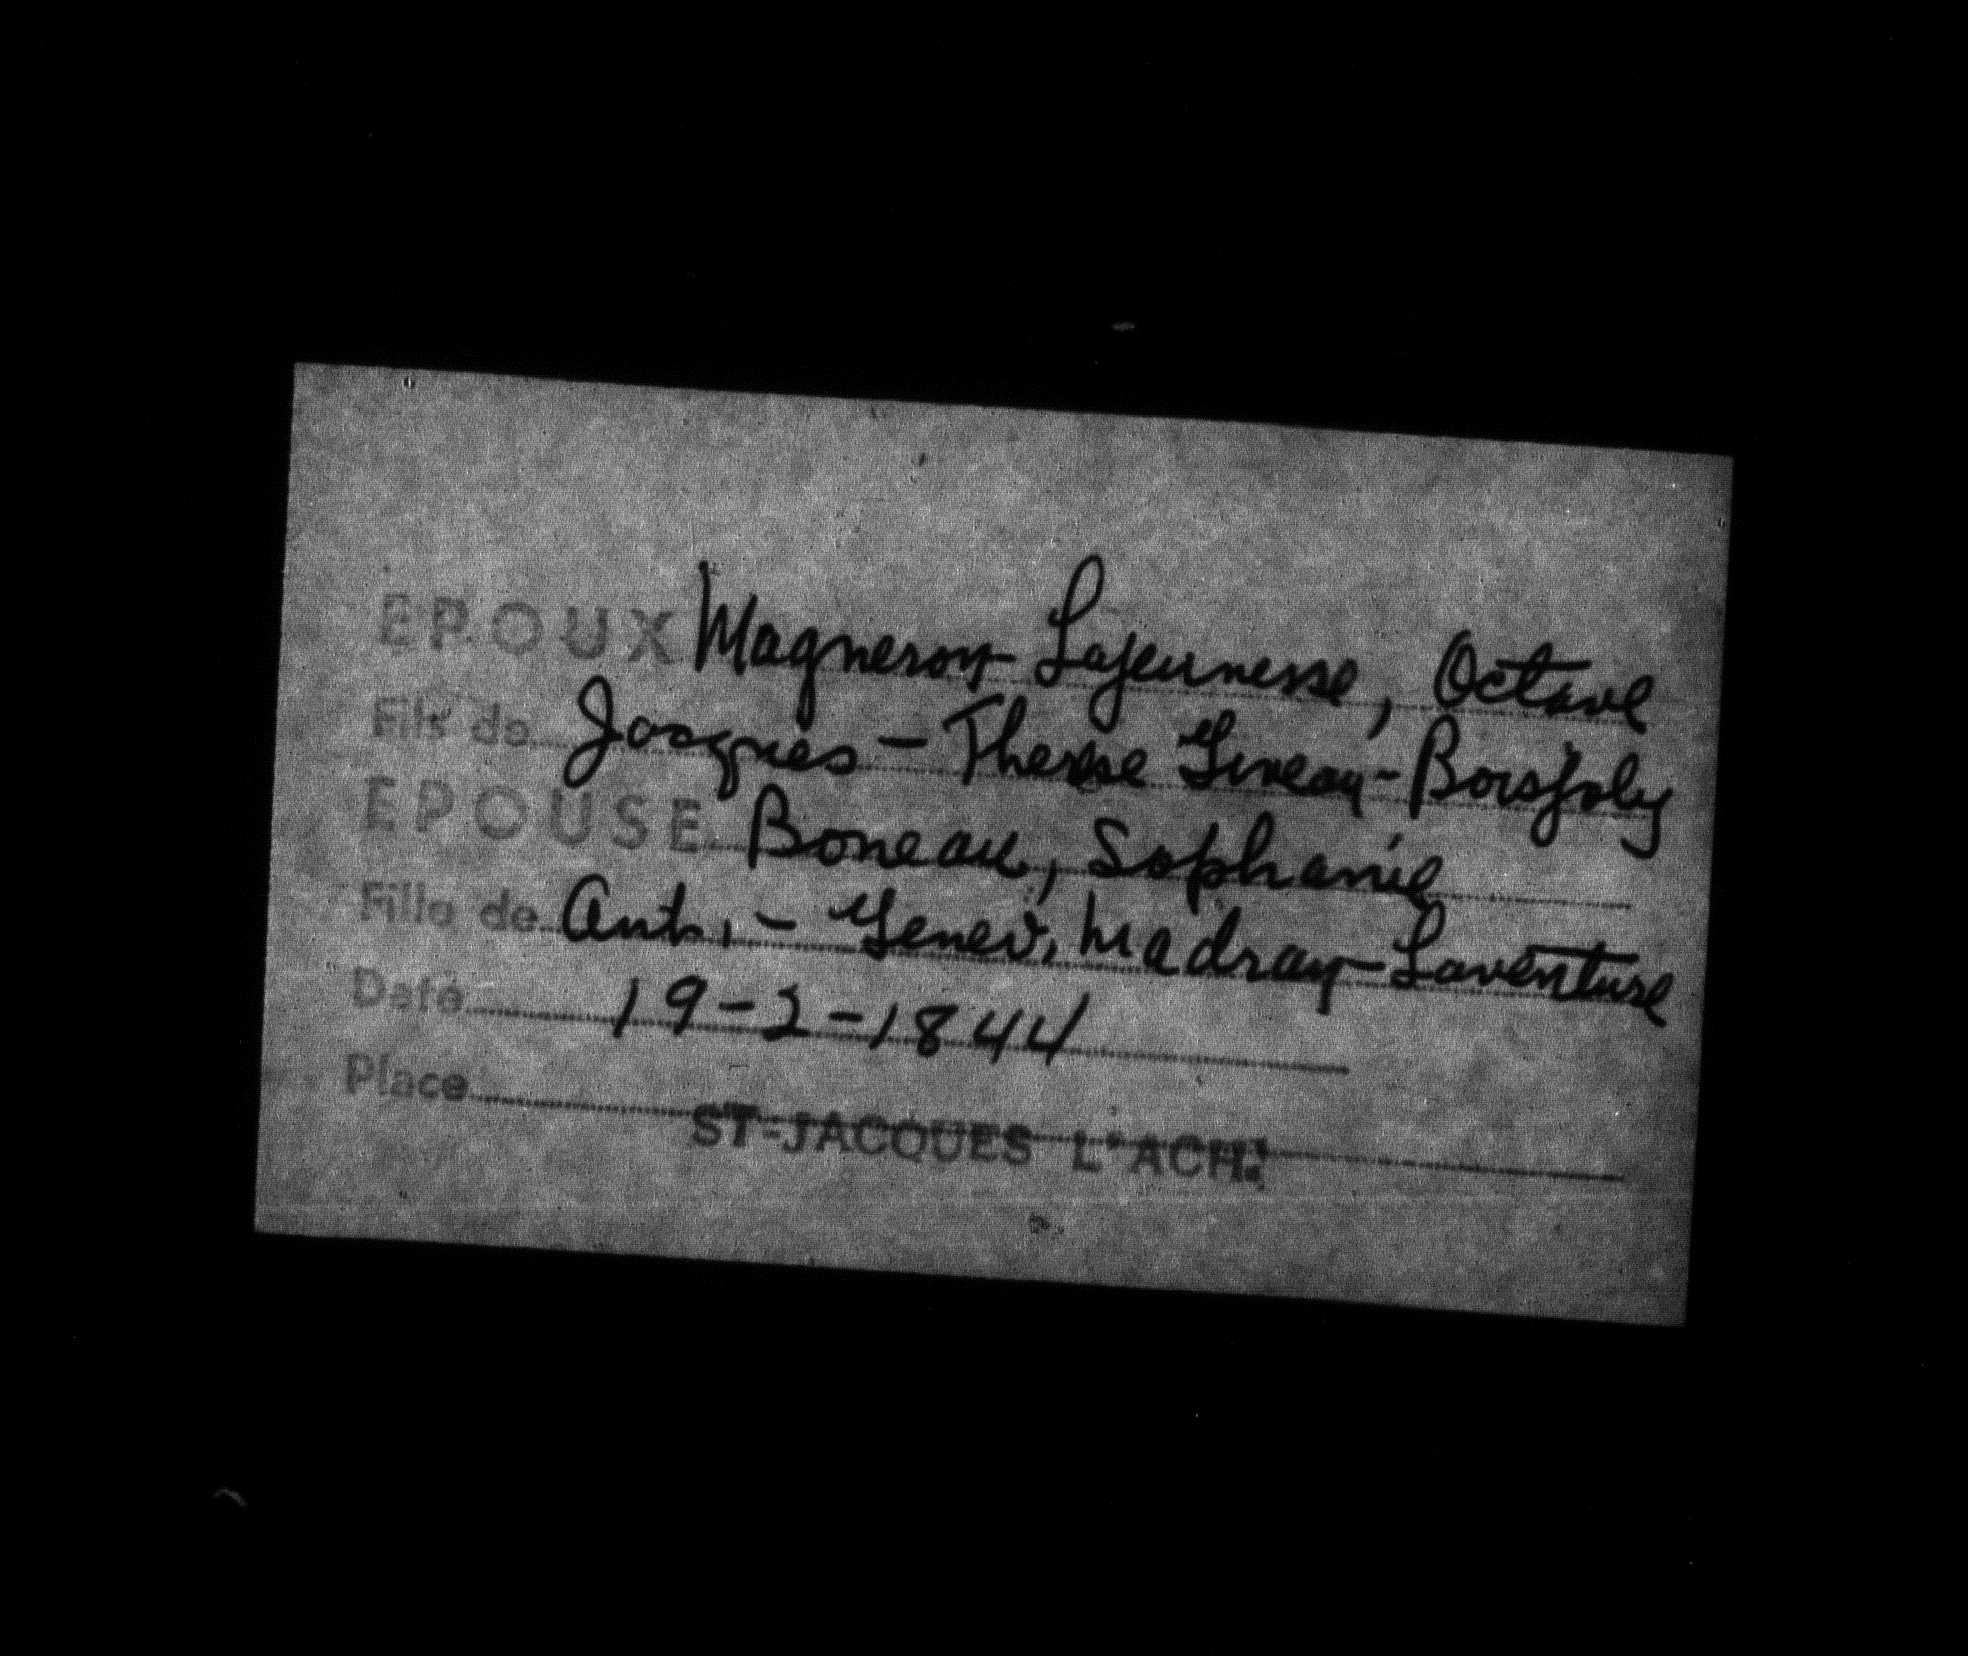 EPOUX Magneron-Lajeunesse, Octave
Fils de Jacques - Therese Liveau-Boisjoly
EPOUSE Boneau, Sophanie
Fille de Ant. - Genev. Madray-Laventure
Date 19-2-1844
Place ST-JACQUES L'ACH.